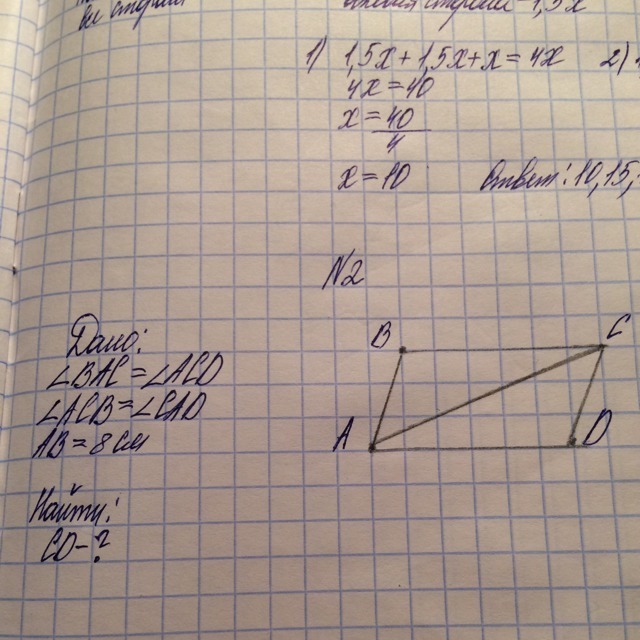 все стороны
1) 1,5x + 1,5x + x = 4x 2)
4x = 40
x = 40
4
x = 10 Ответ: 10, 15,
N2
Дано:
∠BAC = ∠ACD
∠ACB = ∠CAD
AB = 8 см
Найти:
CD - ?
B
C
A
D